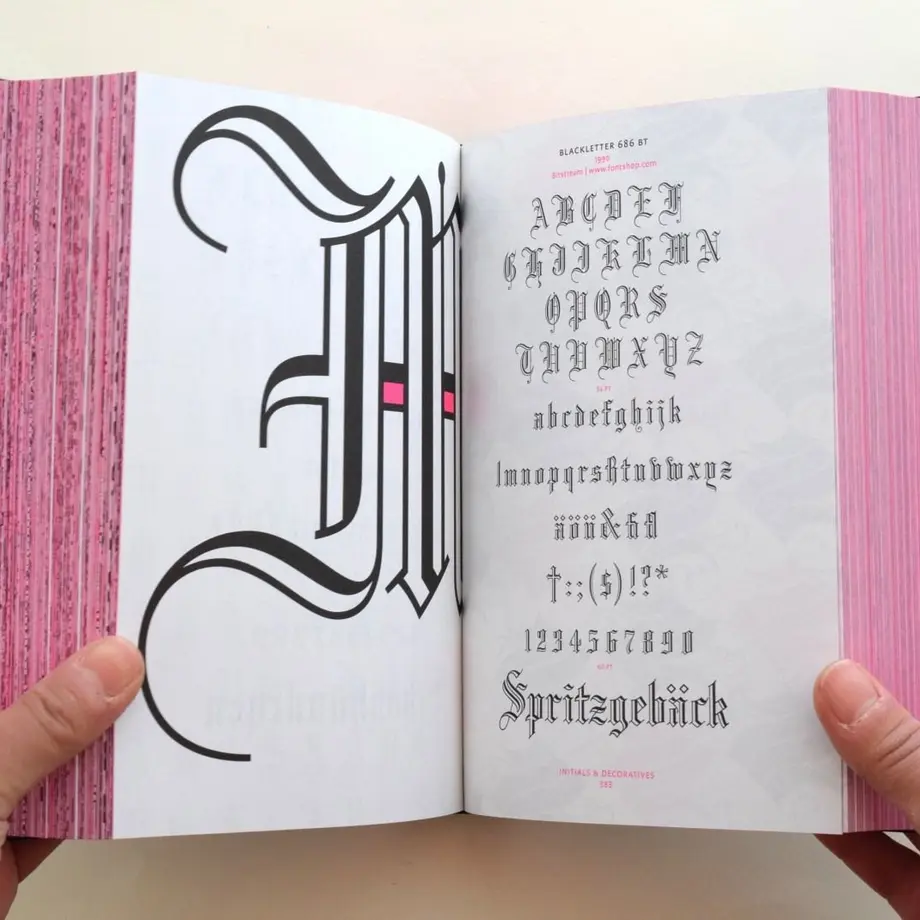 M
BLACKLETTER 686 BT
1990
Bitstream | www.fontshop.com
ABCDEF
GHIJKLMN
OPQRS
TUVWXYZ
abcdefghijk
lmnopqrsßtuvwxyz
äöü&
†:;($)!?*
1234567890
60 PT
Spritzgebäck
INITIALS & DECORATIVES